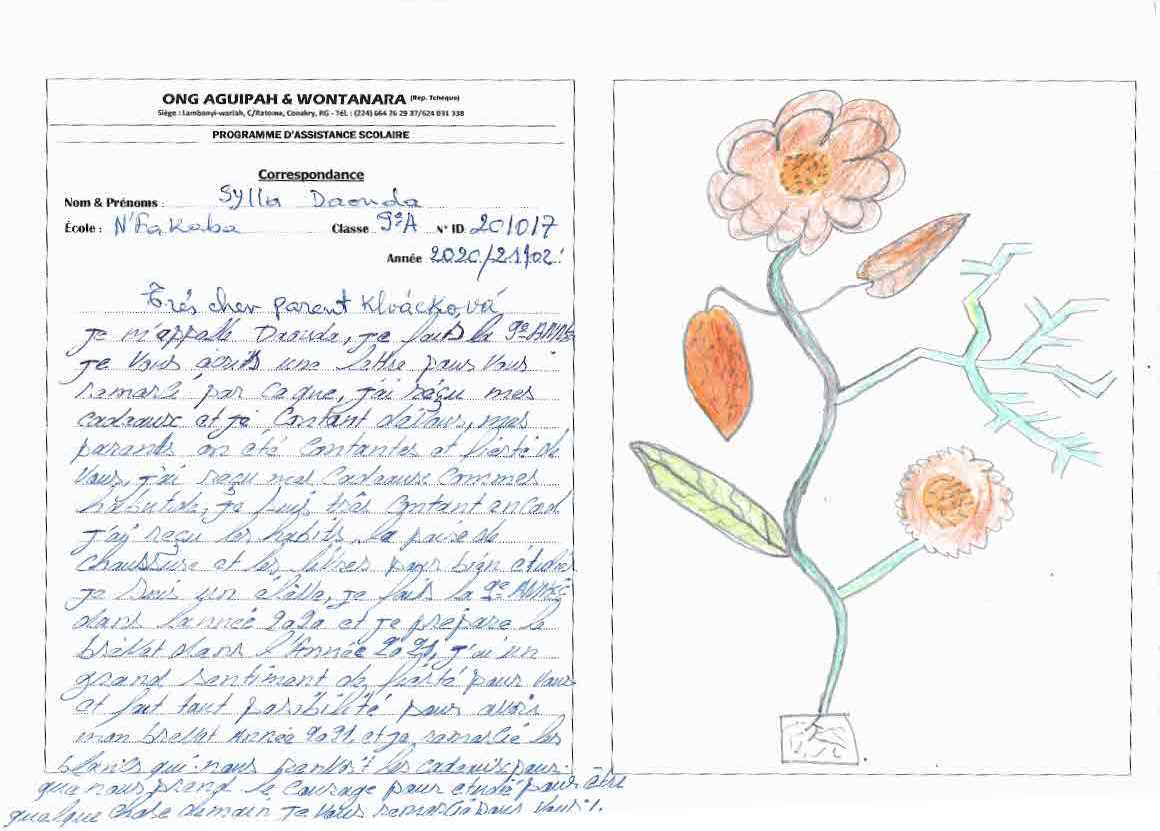 ONG AGUIPAH & WONTANARA (Rep. Tchèque)
Siège : Lambanyi-wariah, C/Ratoma, Conakry, RG - Tél. : (224) 664 76 29 37/624 031 338
PROGRAMME D'ASSISTANCE SCOLAIRE
Correspondance
Nom & Prénoms : Sylla Daouda
École : N'Fakaba Classe 9e A N° ID 201017
Année 2020/21/02
Très cher parent Klváčková
je m'appalle Daouda, je fais la 9e ANNÉE
je vous écrits une lettre pour vous
remarcié par ce que, j'ai réçu mes
cadeaux et je contant de vous, mes
parents on été contantes et fierté de
vous, j'ai reçu mes cadeaux commes
habitude, je suis très contant
j'ai reçu les habits, la paire de
chaussure et les livres pour bien étudié
je suis un élève, je fais la 9e ANNÉE
dans l'année 2020 et je prépare le
brevet dans l'Année 2021, j'ai un
grand sentiment de fierté pour vous
et fait tout posibilité pour avoir
mon brevet Année 2021, et je remarcié les
blancs qui nous les cadeaux pour
que nous prend le courage pour étudié pour être
quelque chose demain je vous remarcié pour vous.